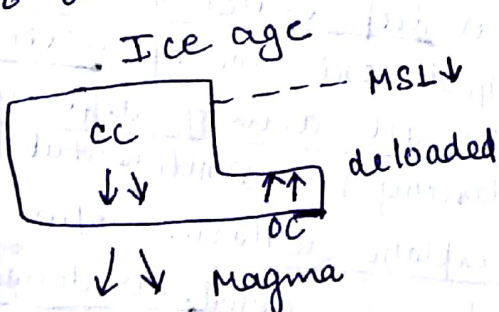 Ice age
MSL↓
CC
deloaded
↓↓
↑↑
OC
↓ ↓ Magma